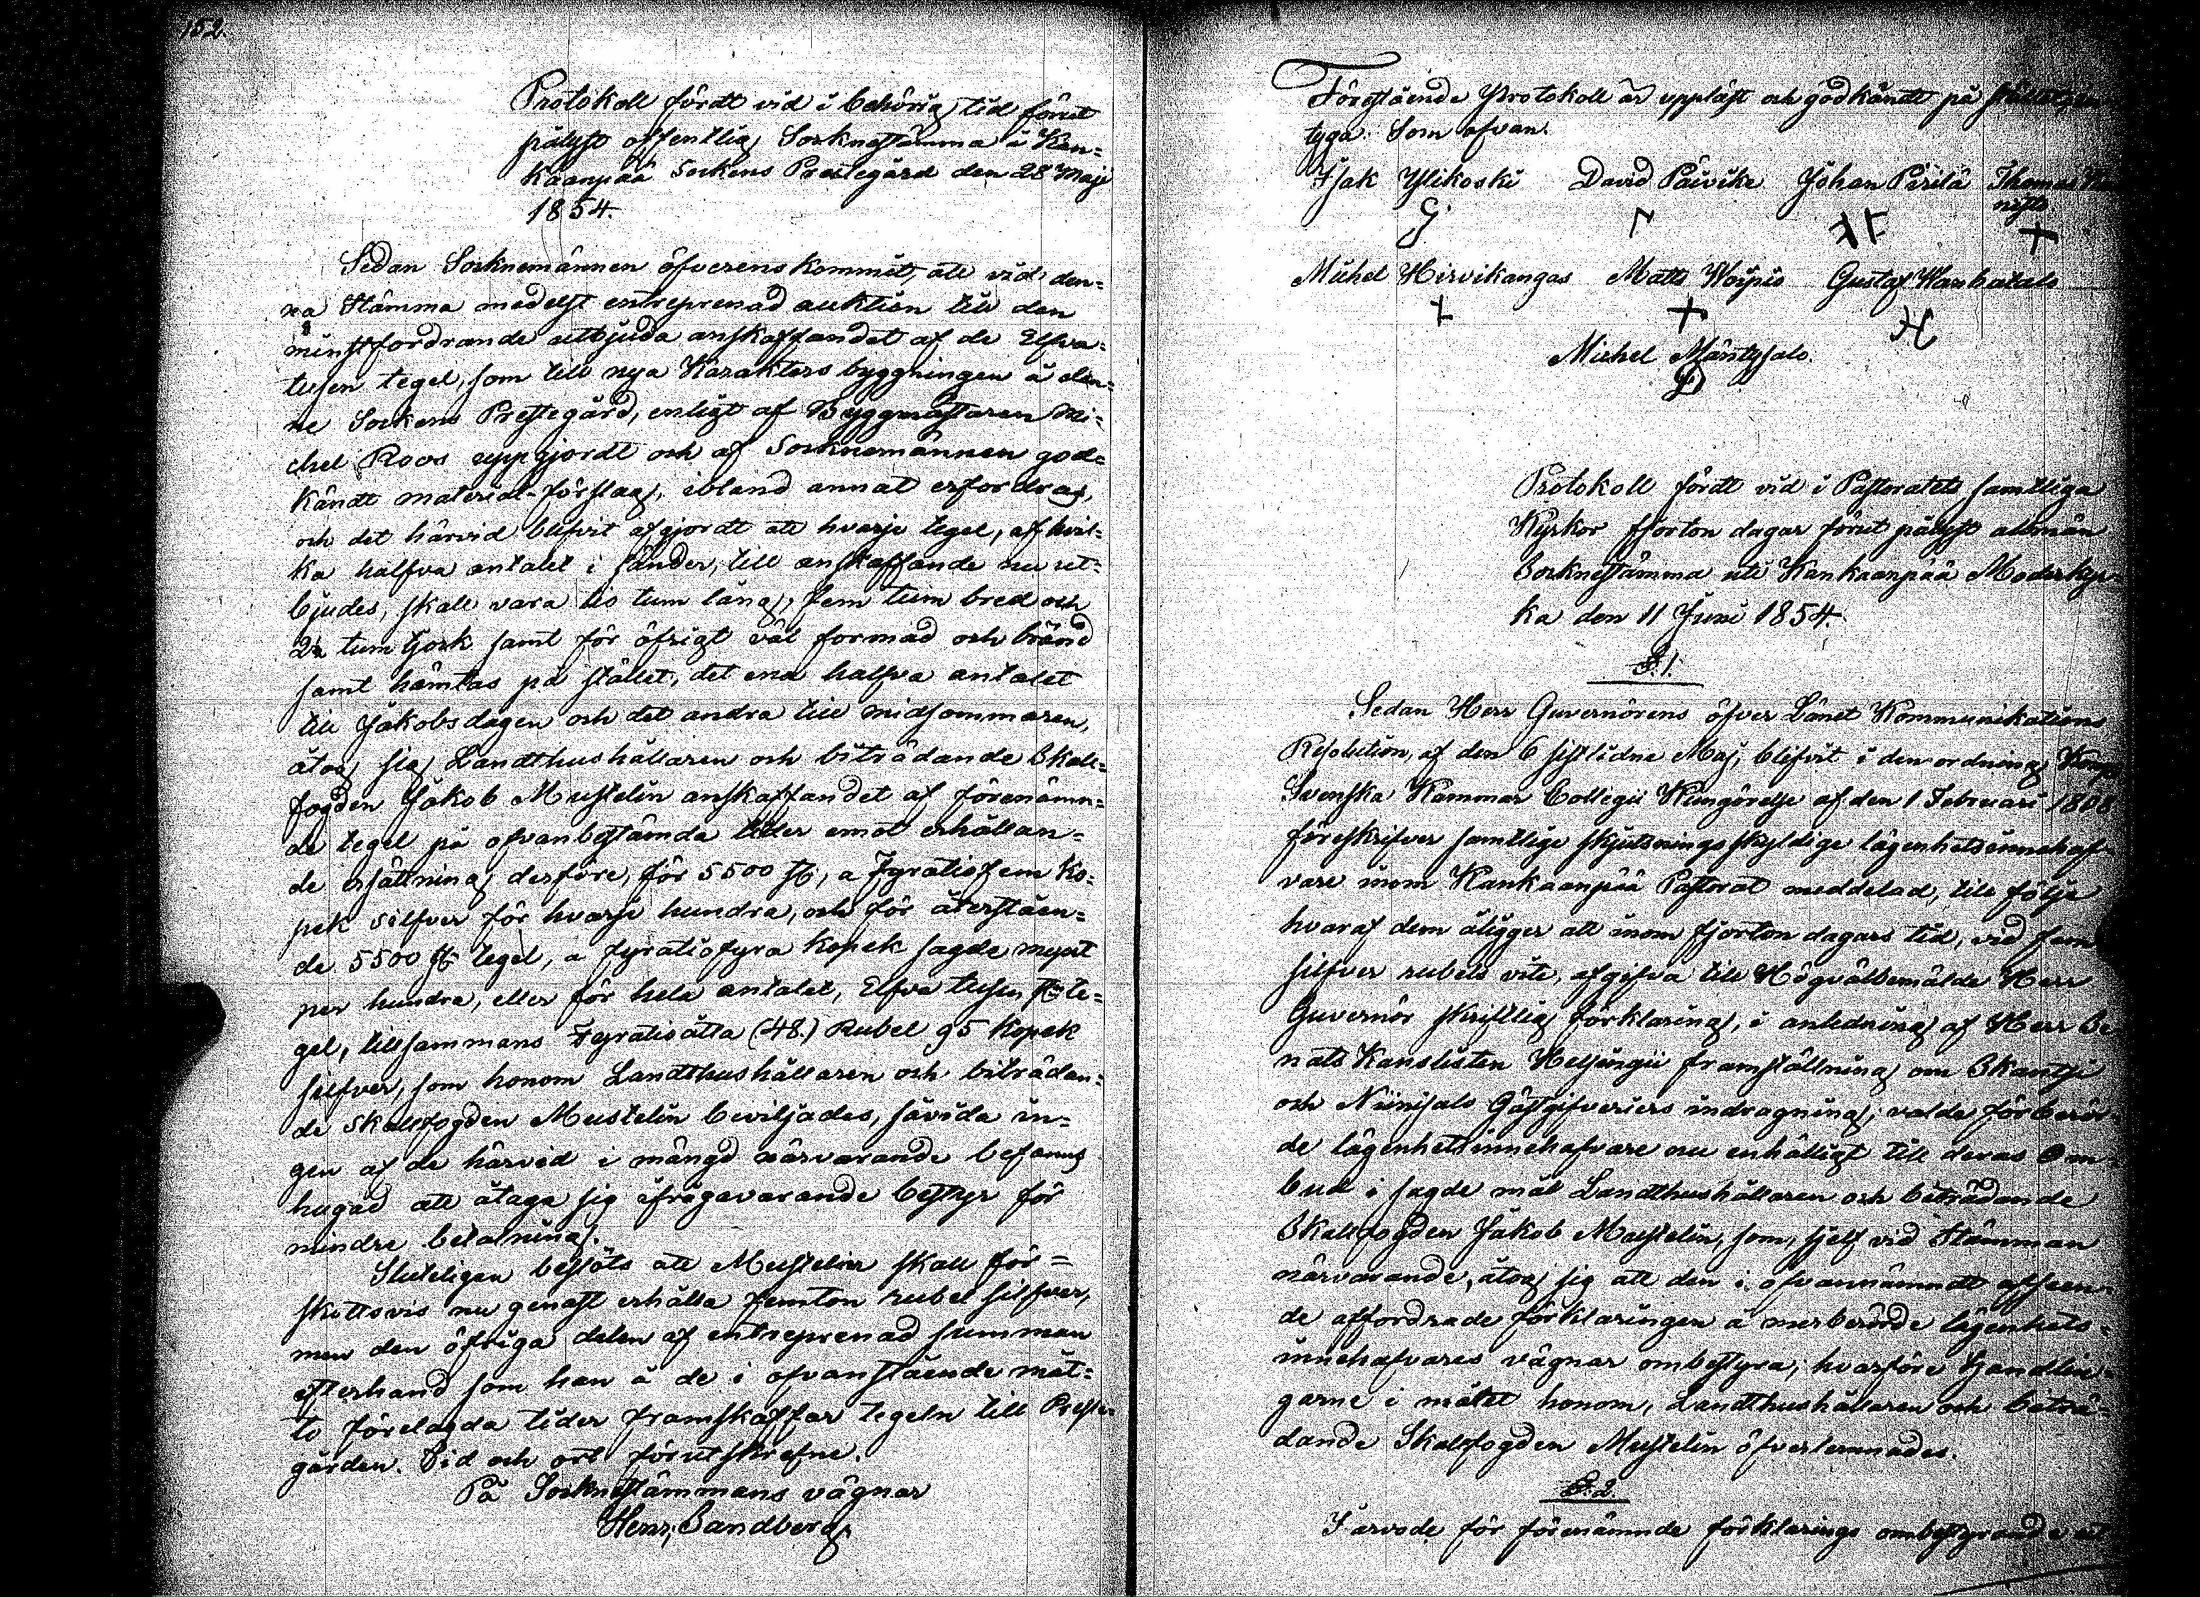 152.
Protokoll fördt vid i behörig tid förut
pålyst offentlig Socknestämma å Kan-
kaanpää Sockens Prestegård den 28 Maji
1854.
Sedan Socknemännen öfverenskommit, att vid den-
na Stämma medelst entreprenad auktion till den
minstfordrande utbjuda anskaffandet af de Elfva-
tusen tegel, som till nya Karaktersbyggningen å den-
ne Sockens Prestegård, enligt af Byggmästaren Mi-
chel Roos uppgjordt och af Socknemännen god-
kändt material-förslag, ibland annat erfordras,
och det härvid blifvit afgjordt att hvarje tegel, af hvil-
ka halfva antalet i sänder, till anskaffande nu ut-
bjudes, skall vara tio tum lång, fem tum bred och
2½ tum tjock samt för öfrigt väl formad och bränd
samt hämtas på stället, det ena halfva antalet
till Jakobsdagen och det andra till midsommaren,
åtog sig Landthushållaren och biträdande Skall-
fogden Jakob Mustelin anskaffandet af förenämn-
de tegel på ofvanbestämda tider emot erhållan-
de ersättning derföre, för 5500 st, a Fyratiofem Ko-
pek silfver för hvarje hundra, och för återståen-
de 5500 st tegel, a fyratiofyra kopek sagde mynt
per hundra, eller för hela antalet, Elfva tusen st te-
gel, tillsammans Fyratioåtta (48.) Rubel 95 Kopek
silfver, som honom Landthushållaren och biträdan-
de Skallfogden Mustelin beviljades, såvida in-
gen af de härvid i mängd närvarande befanns
hugad att åtaga sig ifrågavarande bestyr för
mindre betalning.
Sluteligen beslöts att Mustelin skall för-
skottsvis nu genast erhålla femton rubel silfver,
men den öfriga delen af entreprenad summan
efterhand som han å de i ofvanstående måt-
to förelagda tider framskaffar tegeln till Preste-
gården. Tid och ort förutskrefne.
På Socknestämmans vägnar
Henr: Sandberg.
Förestående Protokoll är uppläst och godkändt på
tyga. Som ofvan.
Isak Ylikoski David Päivike Johan Pirilä Thomas
Michel Hirvikangas Matts Woipio Gustaf
Michel Mäntysalo.
Protokoll fördt vid i Pastoratets samtliga
Kyrkor fjorton dagar förut pålyst allmän
Socknestämma uti Kankaanpää Moderkyr-
ka den 11 Juni 1854.
§.1.
Sedan Herr Guvernörens öfver Länet Kommunikations
Resolution, af den 6 sistlidne Maj, blifvit i den ordning Kongl
Svenska Kammar Collegii Kungörelse af den 1 Februari 1808
föreskrifver samtlige skjutsningsskyldige lägenhetsinnehaf-
vare inom Kankaanpää Pastorat meddelad, till följe
hvaraf dem åligger att inom fjorton dagars tid, vid fem
silfver rubels vite, afgifva till Högvälbemälde Herr
Guvernör skriftlig förklaring, i anledning af Herr Se-
nats Kanslisten Helsingii framställning om Skantsi
och Niinisalo Gästgifveriers indragning; valde förberör-
de lägenhetsinnehafvare nu enhälligt till deras Om-
bud i sagde mål Landthushållaren och biträdande
Skallfogden Jakob Mustelin, som, sjelf vid Stämman
närvarande, åtog sig att den i ofvannämndt afseen-
de affordrade förklaringen å merberörde lägenhets-
innehafvares vägnar ombestyra, hvarföre Handlin-
garne i målet honom, Landthushållaren och biträ-
dande Skallfogden Mustelin öfverlemnades.
§.2.
I arvode för förenämnde förklarings ombestyrande